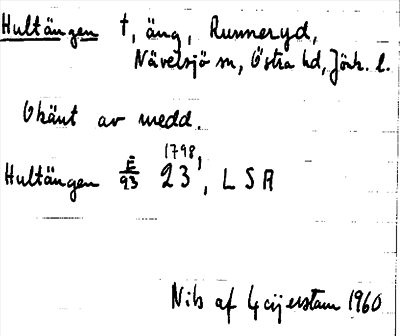 Hultängen †, äng, Runneryd,
Nävelsjö sn, Östra hd, Jönk. l.
Okänt av medd.
Hultängen E/93 23 1798, LSA
Nils af 1960